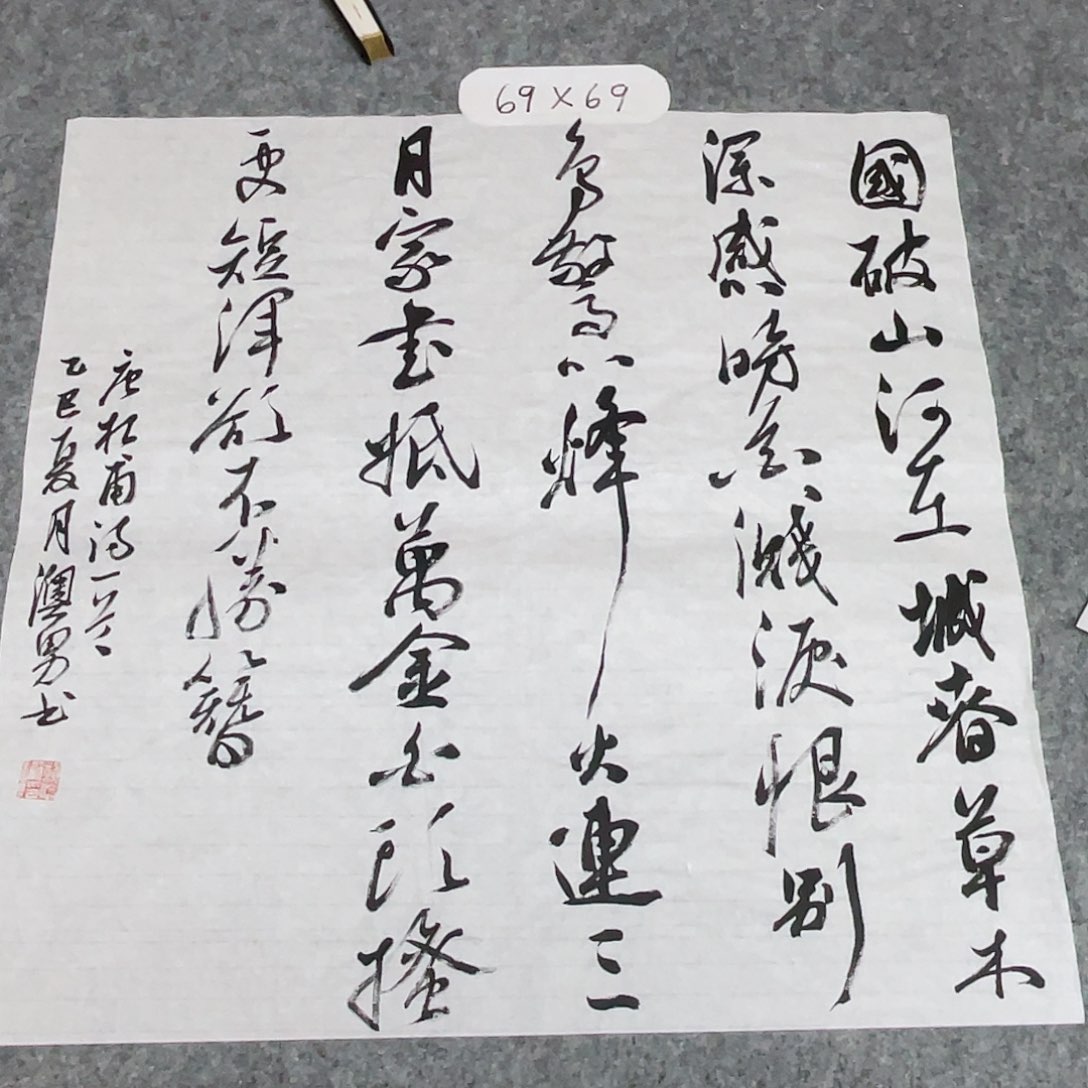 69×69
國破山河在城春草木
深感時花濺淚恨別
鳥驚心烽火連三
月家書抵萬金白頭搔
更短渾欲不勝簪
唐杜甫詩一首
乙巳夏月澳男书